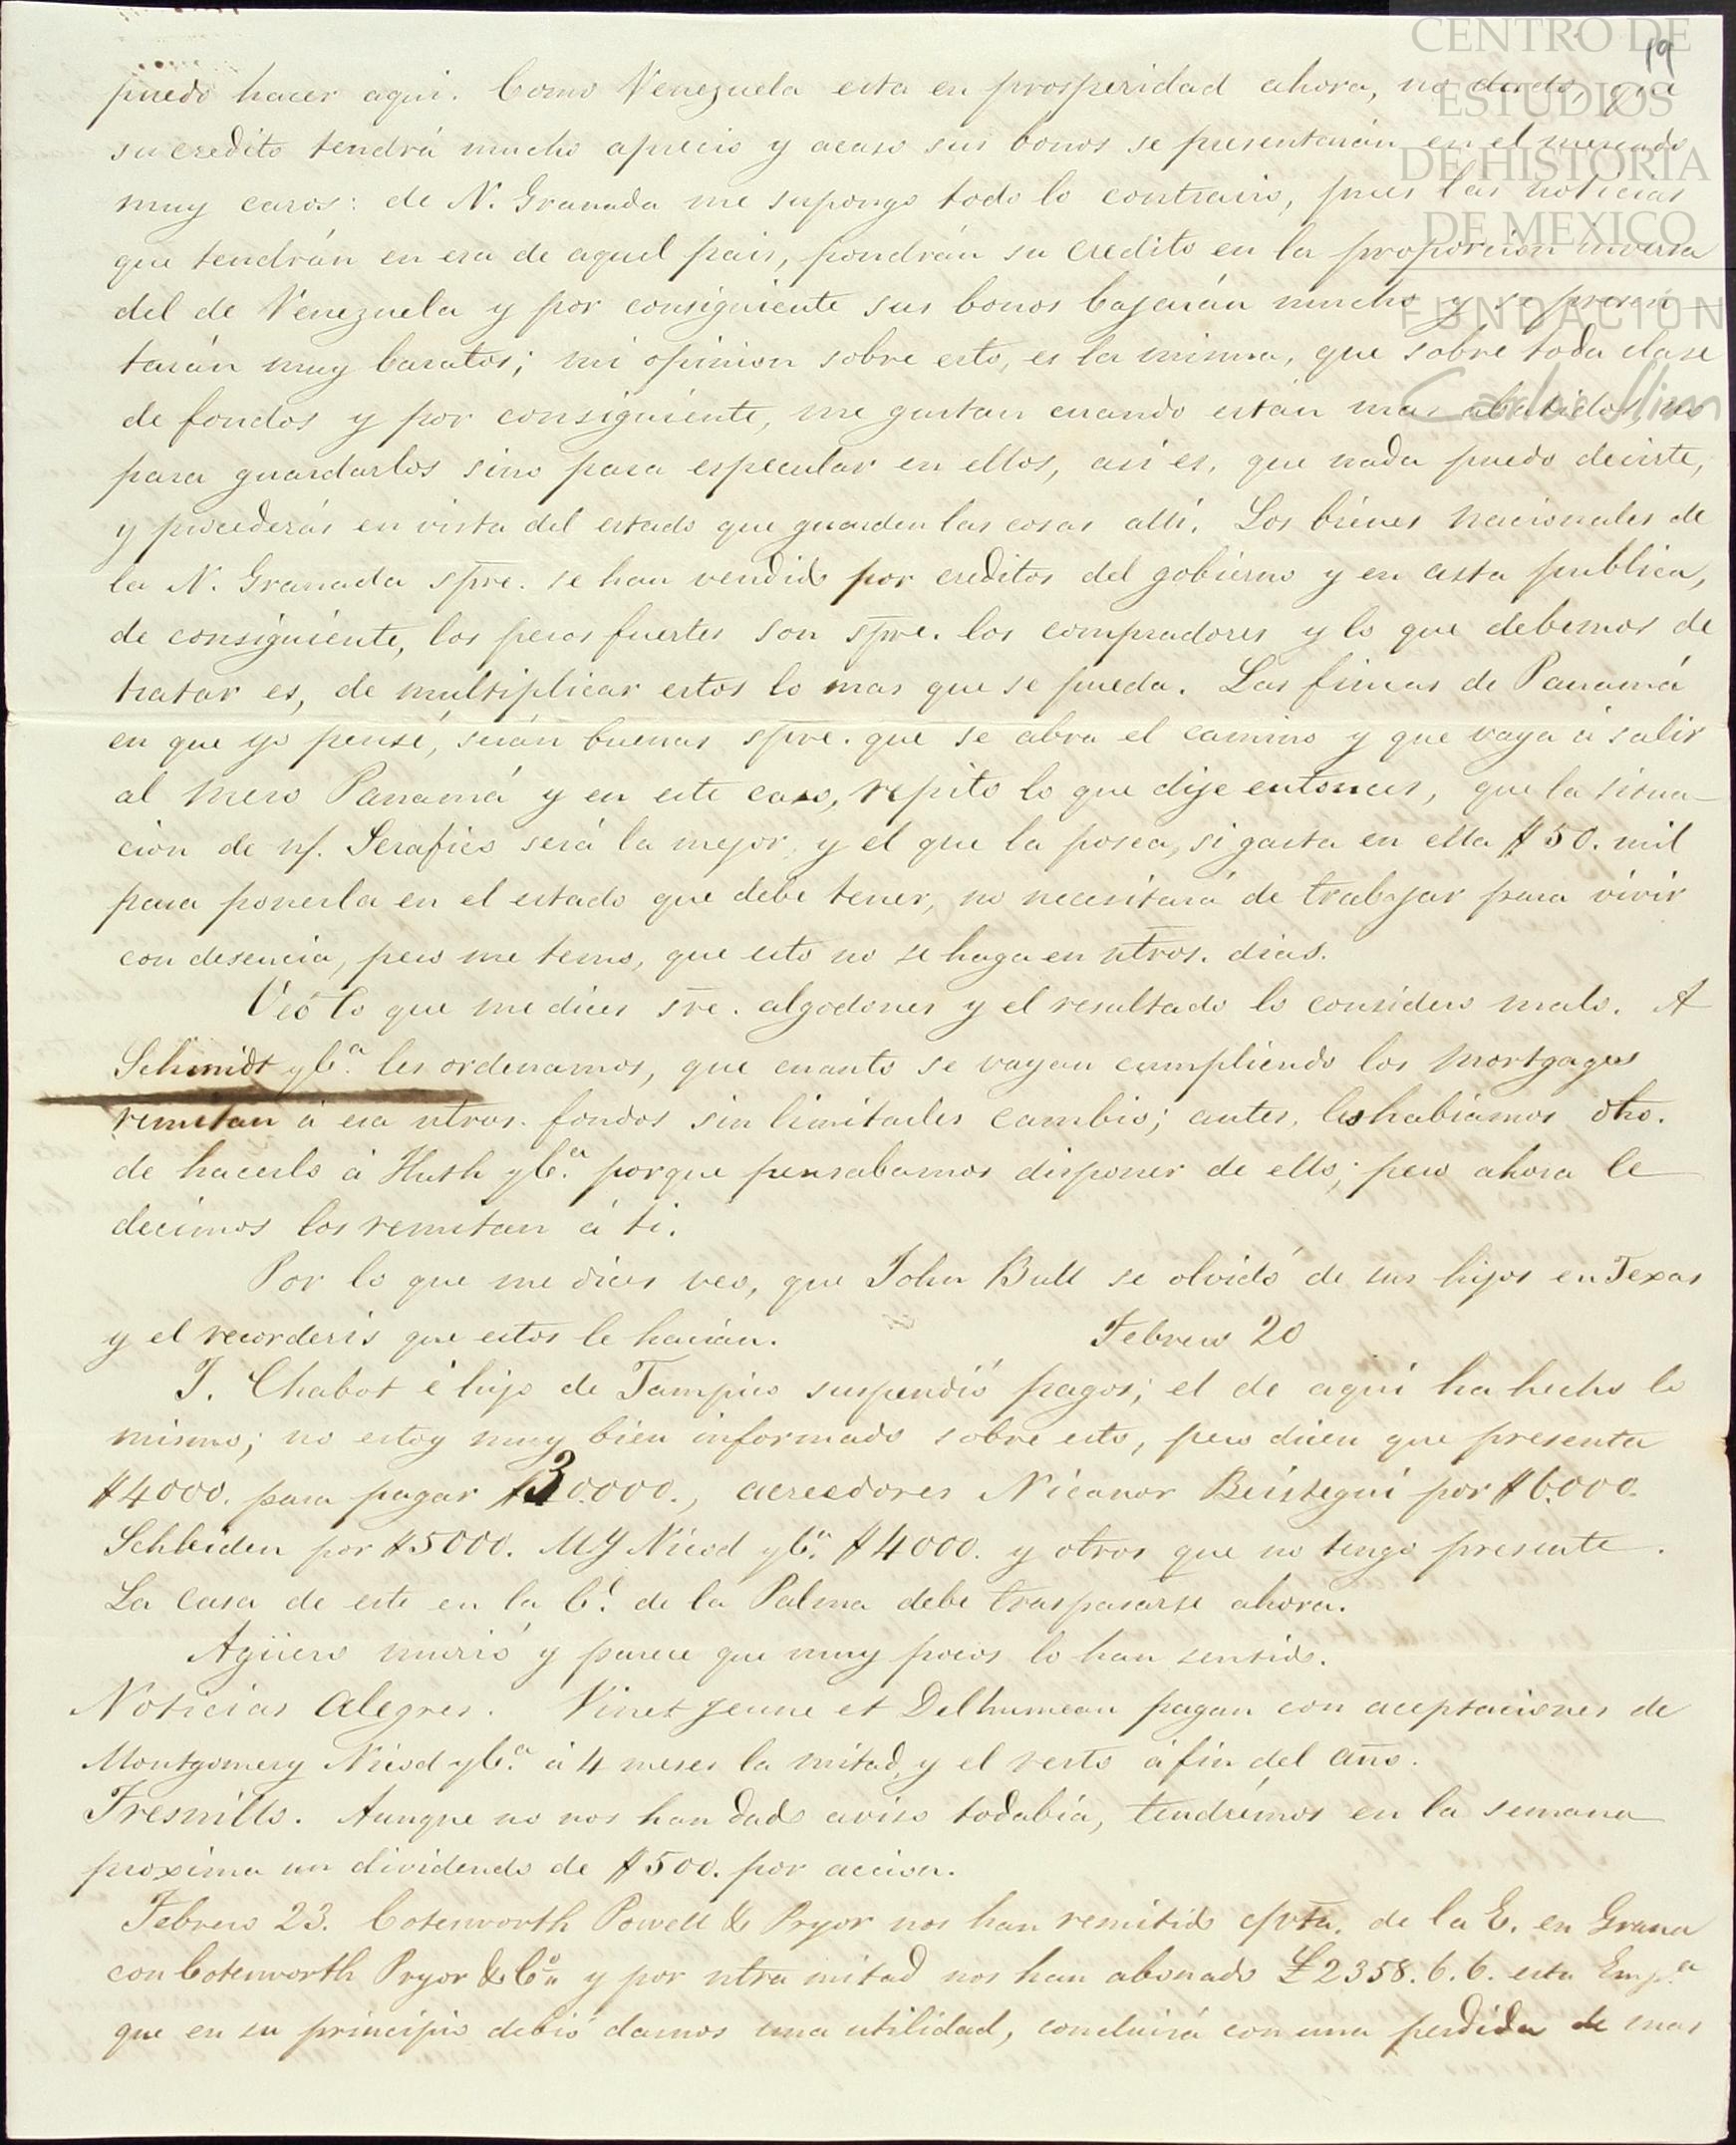 19
CENTRO DE
ESTUDIOS
DE HISTORIA
DE MEXICO
FUNDACION
Carlos Slim
puedo hacer aqui. Como Venezuela esta en prosperidad ahora, no dudo, que
su credito tendrá mucho aprecio y acaso sus bonos se presentarán en el mercado
muy caros: de N. Granada me supongo todo lo contrario, pues las noticias
que tendrán en esa de aquel pais, pondrán su credito en la proporcion inversa
del de Venezuela y por consiguiente sus bonos bajarán mucho y se presen
tarán muy baratos; mi opinion sobre esto, es la misma, que sobre toda clase
de fondos y por consiguiente, me gustan cuando están mas abatidos, no
para guardarlos sino para especular en ellos, asi es, que nada puedo decirte,
y procederás en vista del estado que guarden las cosas allí. Los bienes nacionales de
la N. Granada spre. se han vendido por creditos del gobierno y en asta publica,
de consiguiente, los pesos fuertes son spre. los compradores y lo que debemos de
tratar es, de multiplicar estos lo mas que se pueda. Las fincas de Panamá
en que yo pensé, serán buenas spre. que se abra el camino y que vaya á salir
al mero Panamá y en este caso, repito lo que dije entonces, que la situa-
cion de Serafico será la mejor y el que la posea, si gasta en ella $50. mil
para ponerla en el estado que debe tener, no necesitará de trabajar para vivir
con desencia, pero me temo, que esto no se haga en ntros. dias.
Veo lo que me dices sre. algodones y el resultado lo considero malo. A
Schmidt y Cª. les ordenamos, que cuanto se vayan cumpliendo los mortgages
remitan á esa ntros. fondos sin limitarles cambio; antes, les habiamos dho.
de hacerlo á Huth y Cª. porque pensabamos disponer de ello; pero ahora le
decimos los remitan á ti.
Por lo que me dices veo, que John Bull se olvidó de sus hijos en Texas
y el recorderis que estos le hacian.
Febrero 20
J. Chabot é hijo de Tampico suspendió pagos; el de aquí ha hecho lo
mismo; no estoy muy bien informado sobre esto, pero dicen que presenta
$4000. para pagar $30.000., acreedores Nicanor Beistegui por $6.000.
Schleiden por $5000. MG Nicod y Cª. $4000. y otros que no tengo presente.
La casa de este en la C. de la Palma debe traspasarse ahora.
Agüero murió y parece que muy pocos lo han sentido.
Noticias Alegres. Vinet Jeune et Delhumeau pagan con aceptaciones de
Montgomery Nicod y Cª. á 4 meses la mitad, y el resto á fin del año.
Fresnillo. Aunque no nos han dado aviso todabia, tendrémos en la semana
proxima un dividendo de $500. por accion.
Febrero 23. Cotesworth Powell & Pryor nos han remitido c/vta. de la E. en Grana
con Cotesworth Pryor & Cº. y por ntra mitad nos han abonado £2358.6.6. esta Empª
que en su principio debió darnos una utilidad, concluirá con una perdida de mas